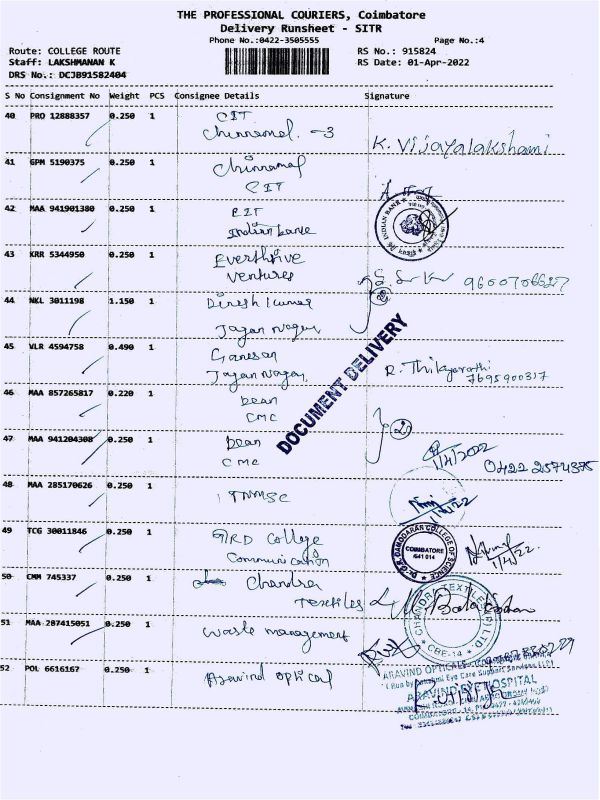 THE PROFESSIONAL COURIERS, Coimbatore
Delivery Runsheet - SITR
Phone No.:0422-3505555 Page No.:4
Route: COLLEGE ROUTE RS No.: 915824
Staff: LAKSHMANAN K RS Date: 01-Apr-2022
DRS No.: DCJB91582404
S No Consignment No Weight PCS Consignee Details Signature
40 PRO 12888357 0.250 1 CIT
Chinnamal -3 K. Vijayalakshami
41 GPM 5190375 0.250 1 Chinnamal
CIT
42 MAA 941901380 0.250 1 CIT
Indian bank INDIAN BANK
43 KRR 5344950 0.250 1 Everthrive
Ventures
44 NKL 3011198 1.150 1 Dinesh kumar
Jagan Nagar
45 VLR 4594758 0.490 1 Ganesan
Jagan Nagar 7695900317
DOCUMENT DELIVERY
46 MAA 857265817 0.220 1 Dean
CMC
47 MAA 941204308 0.250 1 Dean 1/4/2022
CMC 0422 2574375
48 MAA 285170626 0.250 1 TNMSC
49 TCG 30011846 0.250 1 GRD College
Communication 1/4/22
DR. G.R. DAMODARAN COLLEGE OF SCIENCE COIMBATORE 641 014
50 CMM 745337 0.250 1 Chandra
Textiles
CHANDRA TEXTILES (P) LTD CBE-14
51 MAA 287415051 0.250 1 Waste management
52 POL 6616167 0.250 1 Aravind optical
ARAVIND OPTICALS
ARAVIND EYE HOSPITAL